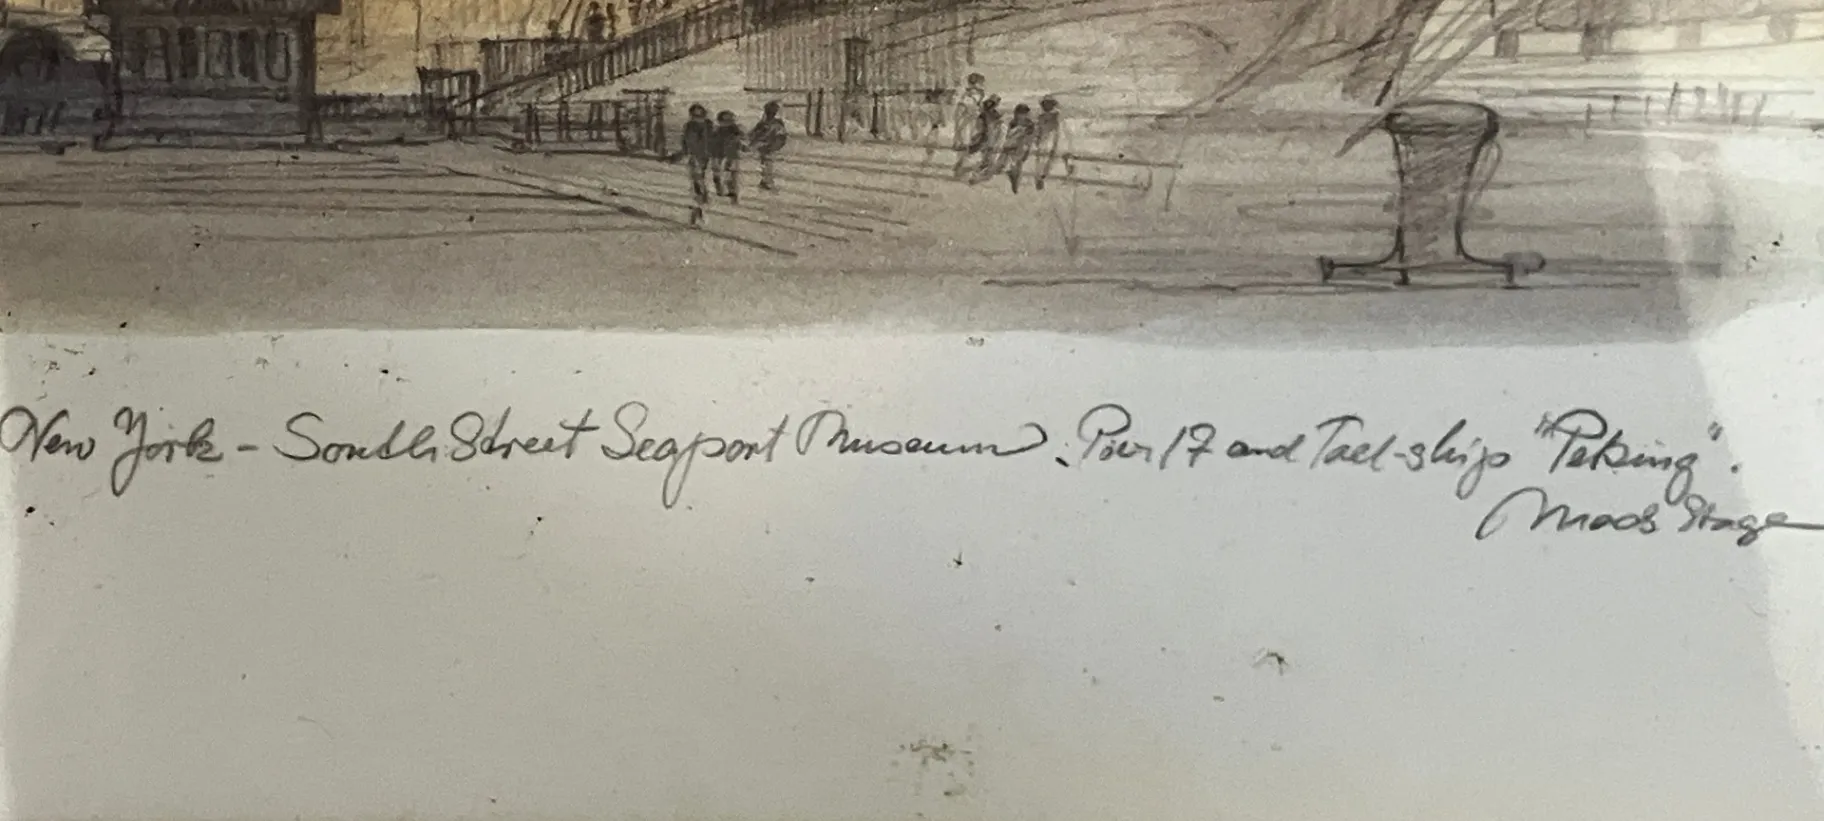 New York - South Street Seaport Museum. Pier 17 and Tall-ship "Peking".
Mads Stage